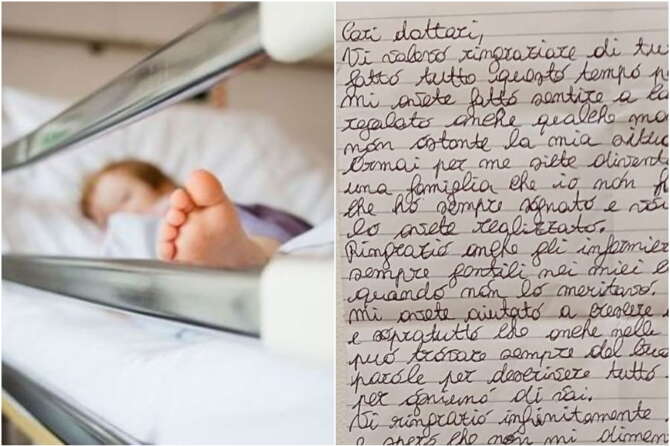 Cari dottori,
Vi volevo ringraziare di tu
fatto tutto questo tempo p
mi avete fatto sentire a ca
regalato anche qualche mo
non ostante la mia situ
Ormai per me siete divent
una famiglia che io non
che ho sempre sognato e voi
lo avete realizzato.
Ringrazio anche gli infermier
sempre gentili nei miei
quando non lo meritavo.
mi avete aiutato a crescere
e sopratutto che anche nelle
può trovare sempre del buo
parole per descrivere tutto
per ogniuno di voi.
Vi ringrazio infinitamente
e spero che non mi dimen